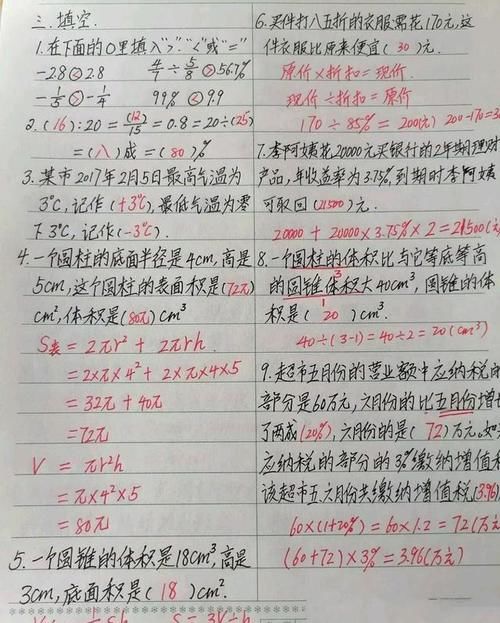 三.填空.
1.在下面的○里填入">""<"或"="
-2.8<2.8 4/7÷5/8>56.7%
-1/5>-1/4 99%<9.9
2.(16):20=(12)/15=0.8=20÷(25)
=(八)成=(80)%
3.某市2017年2月5日最高气温为
3℃,记作(+3℃),最低气温为零
下3℃,记作(-3℃).
4.一个圆柱的底面半径是4cm,高是
5cm,这个圆柱的表面积是(72π)
cm²,体积是(80π)cm³
S表=2πr²+2πrh
=2×π×4²+2×π×4×5
=32π+40π
=72π
V=πr²h
=π×4²×5
=80π
5.一个圆锥的体积是18cm³,高是
3cm,底面积是(18)cm².
6.买件打八五折的衣服需花170元,这
件衣服比原来便宜(30)元.
原价×折扣=现价.
现价÷折扣=原价
170÷85%=200(元) 200-170=3
7.李阿姨花20000元买银行的2年期理财
产品,年收益率为3.75%,到期时李阿姨
可取回(21500)元.
20000+20000×3.75%×2=21500(元)
8.一个圆柱的体积比与它等底等高
的圆锥体积大40cm³,圆锥的体
积是(20)cm³.
40÷(3-1)=40÷2=20(cm³)
9.超市五月份的营业额中应纳税的
部分是60万元,六月份的比五月份增
了两成(20%),六月份的是(72)万元.如
应纳税的部分的3%缴纳增值
该超市五.六月份共缴纳增值税(3.96)
60×(1+20%)=60×1.2=72(万元)
(60+72)×3%=3.96(万元)